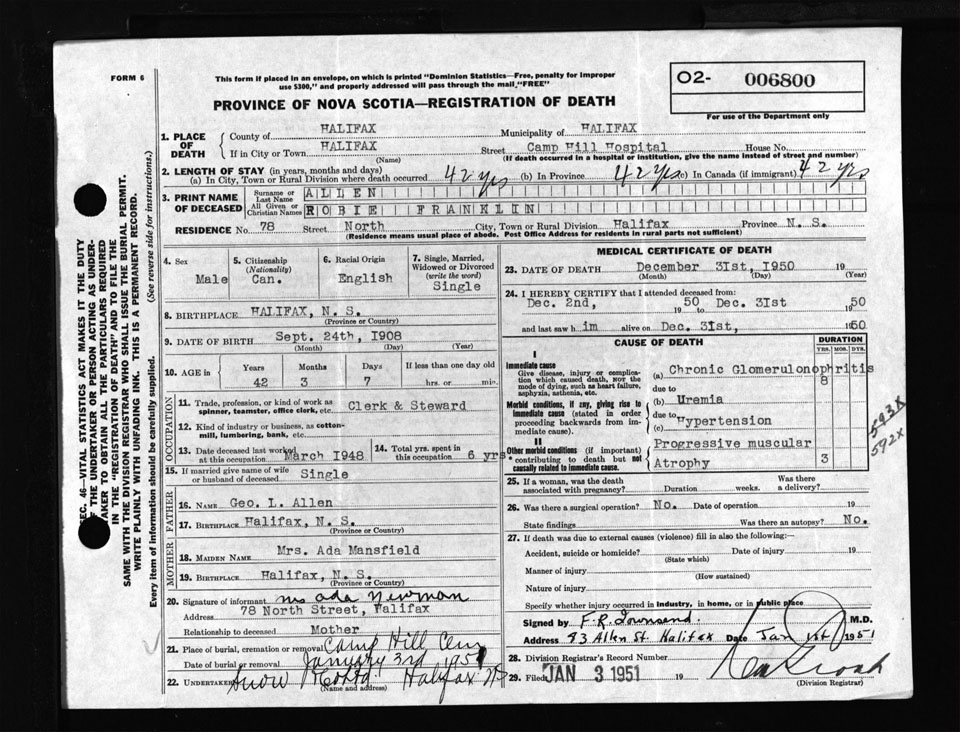 FORM 6
This form if placed in an envelope, on which is printed "Dominion Statistics—Free, penalty for improper
use $300," and properly addressed will pass through the mail "FREE"
O2- 006800
For use of the Department only
PROVINCE OF NOVA SCOTIA—REGISTRATION OF DEATH
SEC. 46—VITAL STATISTICS ACT MAKES IT THE DUTY
OF THE UNDERTAKER OR PERSON ACTING AS UNDER-
TAKER TO OBTAIN ALL THE PARTICULARS REQUIRED
IN THE "REGISTRATION OF DEATH" AND TO FILE THE
SAME WITH THE DIVISION REGISTRAR WHO SHALL ISSUE THE BURIAL PERMIT.
WRITE PLAINLY WITH UNFADING INK. THIS IS A PERMANENT RECORD.
Every item of information should be carefully supplied. (See reverse side for instructions.)
1. PLACE OF DEATH County of HALIFAX Municipality of HALIFAX
If in City or Town HALIFAX (Name) Street Camp Hill Hospital House No.
(If death occurred in a hospital or institution, give the name instead of street and number)
2. LENGTH OF STAY (in years, months and days)
(a) In City, Town or Rural Division where death occurred 42 yrs (b) In Province 42 yrs (c) In Canada (if immigrant) 42 yrs
3. PRINT NAME OF DECEASED Surname or Last Name ALLEN
All Given or Christian Names ROBIE FRANKLIN
RESIDENCE No. 78 Street North City, Town or Rural Division Halifax Province N. S.
(Residence means usual place of abode. Post Office Address for residents in rural parts not sufficient)
4. Sex Male
5. Citizenship (Nationality) Can.
6. Racial Origin English
7. Single, Married, Widowed or Divorced (write the word) Single
8. BIRTHPLACE HALIFAX, N. S.
(Province or Country)
9. DATE OF BIRTH Sept. 24th, 1908
(Month) (Day) (Year)
10. AGE IN Years 42 Months 3 Days 7 If less than one day old hrs. or min.
OCCUPATION
11. Trade, profession, or kind of work as spinner, teamster, office clerk, etc. Clerk & Steward
12. Kind of industry or business, as cotton-mill, lumbering, bank, etc.
13. Date deceased last worked at this occupation March 1948
14. Total yrs. spent in this occupation 6 yrs
15. If married give name of wife or husband of deceased Single
FATHER
16. NAME Geo. L. Allen
17. BIRTHPLACE Halifax, N. S.
(Province or Country)
MOTHER
18. MAIDEN NAME Mrs. Ada Mansfield
19. BIRTHPLACE Halifax, N. S.
(Province or Country)
20. Signature of informant Mrs Ada Newman
Address 78 North Street, Halifax
Relationship to deceased Mother
21. Place of burial, cremation or removal Camp Hill Cem
Date of burial or removal January 3rd 1951
22. Undertaker Snow Halifax NS
(Name and address)
MEDICAL CERTIFICATE OF DEATH
23. DATE OF DEATH December 31st, 1950 19
(Month) (Day) (Year)
24. I HEREBY CERTIFY that I attended deceased from:
Dec. 2nd, 1950 to Dec. 31st 1950
and last saw h im alive on Dec. 31st, 1950
CAUSE OF DEATH DURATION
YRS. MOS. DYS.
I
Immediate cause
Give disease, injury or complication which caused death, NOT the mode of dying, such as heart failure, asphyxia, asthenia, etc.
(a) Chronic Glomerulonophritis 8
due to
Morbid conditions, if any, giving rise to immediate cause (stated in order proceeding backwards from immediate cause).
(b) Uremia
due to
(c) Hypertension
II
Other morbid conditions (if important) contributing to death but not causally related to immediate cause.
Progressive muscular
Atrophy 3
593X
592X
25. If a woman, was the death associated with pregnancy? Duration weeks. Was there a delivery?
26. Was there a surgical operation? No. Date of operation 19
State findings Was there an autopsy? No.
27. If death was due to external causes (violence) fill in also the following:—
Accident, suicide or homicide? Date of injury 19
(State which)
Manner of injury
(How sustained)
Nature of injury
Specify whether injury occurred in industry, in home, or in public place
Signed by F. R. Townsend. M.D.
Address 93 Allen St. Halifax Date Jan 1st 1951
28. Division Registrar's Record Number
29. Filed JAN 3 1951 19
(Division Registrar)